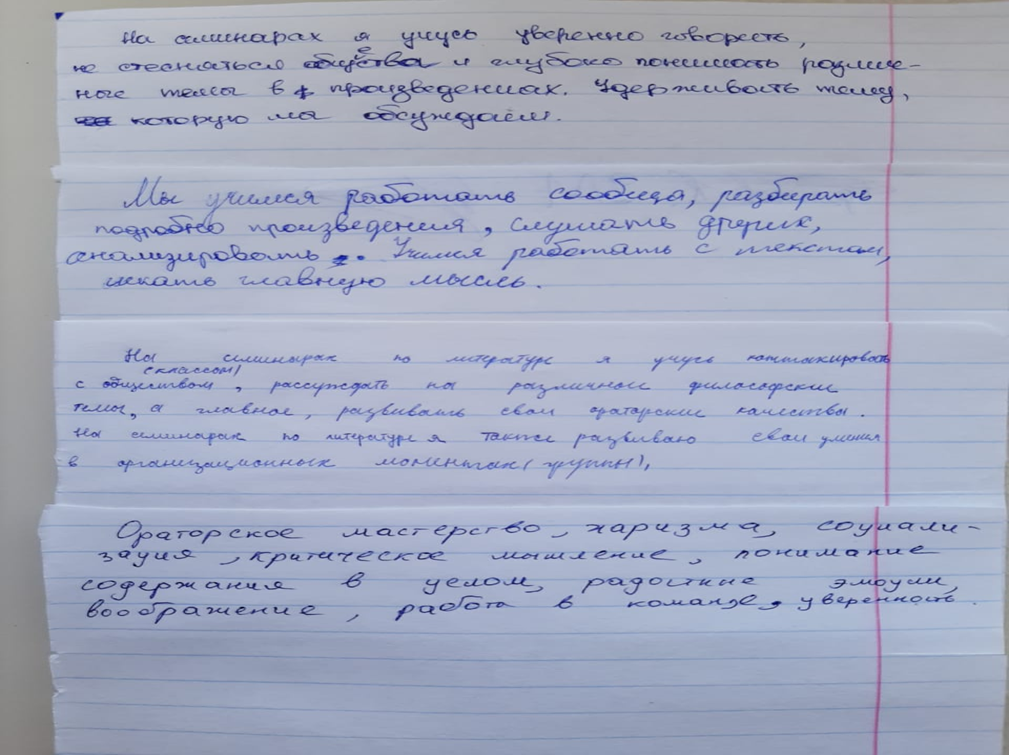 На семинарах я учусь уверенно говорить,
не стесняться общества и глубоко понимать различ-
ные темы в произведениях. Удерживать тему,
которую мы обсуждаем.
Мы учимся работать сообща, разбирать
подробно произведения, слушать других,
анализировать. Учимся работать с текстом,
искать главную мысль.
На семинарах по литературе я учусь контактировать
с классом,
с обществом, рассуждать на различные философские
темы, а главное, развивать свои ораторские качества.
На семинарах по литературе я также развиваю свои умения
в организационных моментах (группы),
Ораторское мастерство, харизма, социали-
зация, критическое мышление, понимание
содержания в целом, радостные эмоции,
воображение, работа в команде, уверенность.